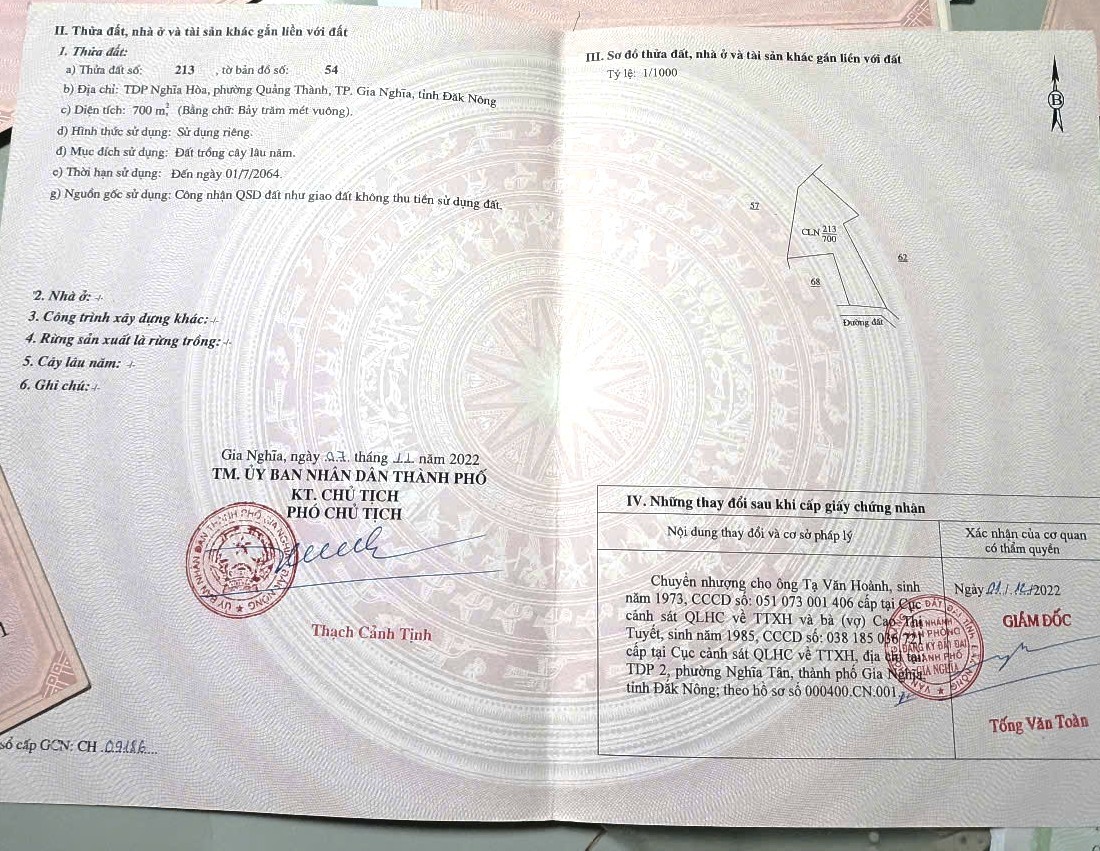 II. Thửa đất, nhà ở và tài sản khác gắn liền với đất
1. Thửa đất:
a) Thửa đất số: 213 , tờ bản đồ số: 54
b) Địa chỉ: TDP Nghĩa Hòa, phường Quảng Thành, TP. Gia Nghĩa, tỉnh Đăk Nông
c) Diện tích: 700 m², (Bằng chữ: Bảy trăm mét vuông).
d) Hình thức sử dụng: Sử dụng riêng.
đ) Mục đích sử dụng: Đất trồng cây lâu năm.
e) Thời hạn sử dụng: Đến ngày 01/7/2064.
g) Nguồn gốc sử dụng: Công nhận QSD đất như giao đất không thu tiền sử dụng đất.
2. Nhà ở: -/-
3. Công trình xây dựng khác: -/-
4. Rừng sản xuất là rừng trồng: -/-
5. Cây lâu năm: -/-
6. Ghi chú: -/-
Gia Nghĩa, ngày 07 tháng 11 năm 2022
TM. ỦY BAN NHÂN DÂN THÀNH PHỐ
KT. CHỦ TỊCH
PHÓ CHỦ TỊCH
Thạch Cảnh Tịnh
số cấp GCN: CH 09186
III. Sơ đồ thửa đất, nhà ở và tài sản khác gắn liền với đất
Tỷ lệ: 1/1000
B
57
CLN 213
700
62
68
Đường đất
IV. Những thay đổi sau khi cấp giấy chứng nhận
Nội dung thay đổi và cơ sở pháp lý
Xác nhận của cơ quan
có thẩm quyền
Chuyển nhượng cho ông Tạ Văn Hoành, sinh
năm 1973, CCCD số: 051 073 001 406 cấp tại Cục
cảnh sát QLHC về TTXH và bà (vợ) Cao Thị
Tuyết, sinh năm 1985, CCCD số: 038 185 036 721
cấp tại Cục cảnh sát QLHC về TTXH, địa chỉ tại:
TDP 2, phường Nghĩa Tân, thành phố Gia Nghĩa,
tỉnh Đăk Nông; theo hồ sơ số 000400.CN.001
Ngày 01/12/2022
GIÁM ĐỐC
Tống Văn Toàn